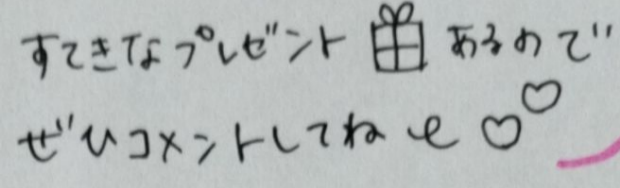 すてきなプレゼント🎁あるので
ぜひコメントしてねe♡♡